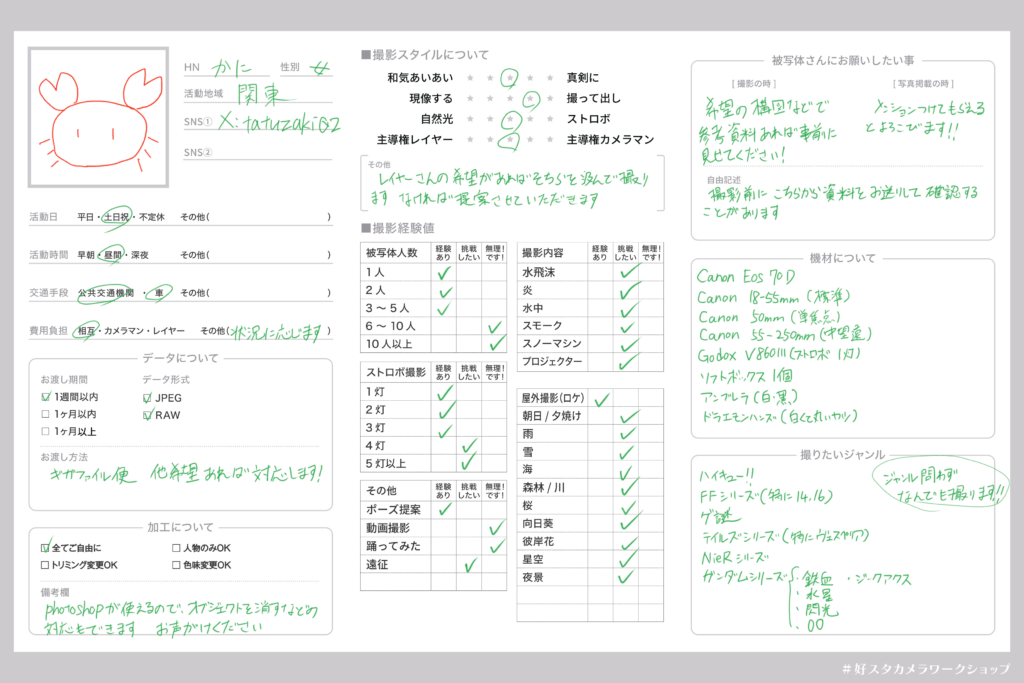 HN かに 性別 ♀
活動地域 関東
SNS① X:tatuzaki02
SNS②
活動日 平日・土日祝・不定休 その他( )
活動時間 早朝・昼間・深夜 その他( )
交通手段 公共交通機関 ・ 車 その他( )
費用負担 相互・カメラマン・レイヤー その他(状況に応じます)
データについて
お渡し期間 データ形式
☑ 1週間以内 ☑ JPEG
□ 1ヶ月以内 ☑ RAW
□ 1ヶ月以上
お渡し方法
ギガファイル便 他希望あれば対応します!
加工について
☑ 全てご自由に □ 人物のみOK
□ トリミング変更OK □ 色味変更OK
備考欄
photoshopが使えるので、オブジェクトを消すなどの
対応もできます お声がけください
■撮影スタイルについて
和気あいあい ★ ★ ★ ★ ★ 真剣に
現像する ★ ★ ★ ★ ★ 撮って出し
自然光 ★ ★ ★ ★ ★ ストロボ
主導権レイヤー ★ ★ ★ ★ ★ 主導権カメラマン
その他
レイヤーさんの希望があればそちらを汲んで撮り
ます なければ提案させていただきます
■撮影経験値
被写体人数 経験あり 挑戦したい 無理!です!
1人 ✓
2人 ✓
3〜5人 ✓
6〜10人 ✓
10人以上 ✓
ストロボ撮影 経験あり 挑戦したい 無理!です!
1灯 ✓
2灯 ✓
3灯 ✓
4灯 ✓
5灯以上 ✓
その他 経験あり 挑戦したい 無理!です!
ポーズ提案 ✓
動画撮影 ✓
踊ってみた ✓
遠征 ✓
撮影内容 経験あり 挑戦したい 無理!です!
水飛沫 ✓
炎 ✓
水中 ✓
スモーク ✓
スノーマシン ✓
プロジェクター ✓
屋外撮影(ロケ) ✓
朝日/夕焼け ✓
雨 ✓
雪 ✓
海 ✓
森林/川 ✓
桜 ✓
向日葵 ✓
彼岸花 ✓
星空 ✓
夜景 ✓
被写体さんにお願いしたい事
[ 撮影の時 ] [ 写真掲載の時 ]
希望の構図などで
参考資料あれば事前に
見せてください!
メンションつけてもらえる
とよろこびます!!
自由記述
撮影前にこちらから資料をお送りして確認する
ことがあります
機材について
Canon Eos 70D
Canon 18-55mm (標準)
Canon 50mm (単焦点)
Canon 55-250mm (中望遠)
Godox V860III(ストロボ 1灯)
ソフトボックス 1個
アンブレラ(白・黒)
ドラエモンハンズ(白くて丸いヤツ)
撮りたいジャンル
ハイキュー!!
FFシリーズ(特に14.16)
ゲ謎
テイルズシリーズ(特にヴェスペリア)
NieRシリーズ
ガンダムシリーズ
・鉄血 ・ジークアクス
・水星
・閃光
・00
ジャンル問わず
なんでも撮ります!!
#好スタカメラワークショップ